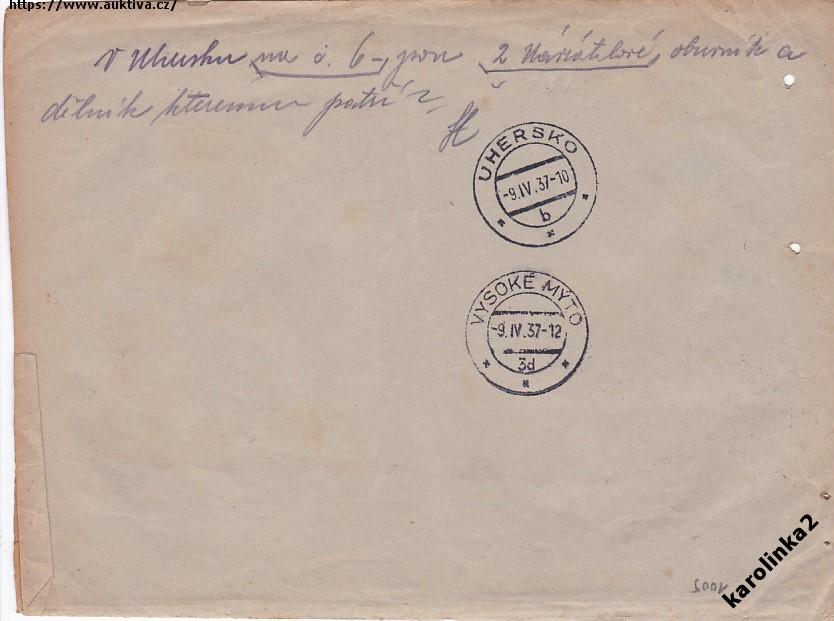 https://www.auktiva.cz/
v Uhersku na č. 6-, jsou 2 Navrátilové, a
dělník kterému patří?
UHERSKO
-9.IV.37-10
b
VYSOKÉ MÝTO
-9.IV.37-12
3d
karolinka2